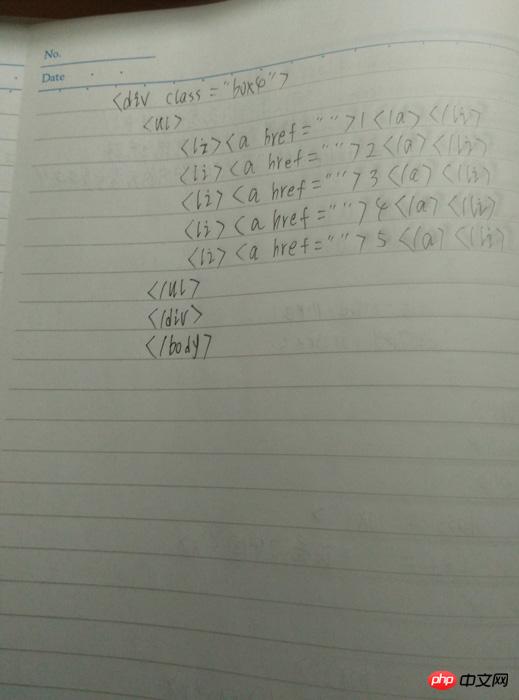 No.
Date
<div class="box4">
<ul>
<li><a href="">1</a></li>
<li><a href="">2</a></li>
<li><a href="">3</a></li>
<li><a href="">4</a></li>
<li><a href="">5</a></li>
</ul>
</div>
</body>
php 中文网